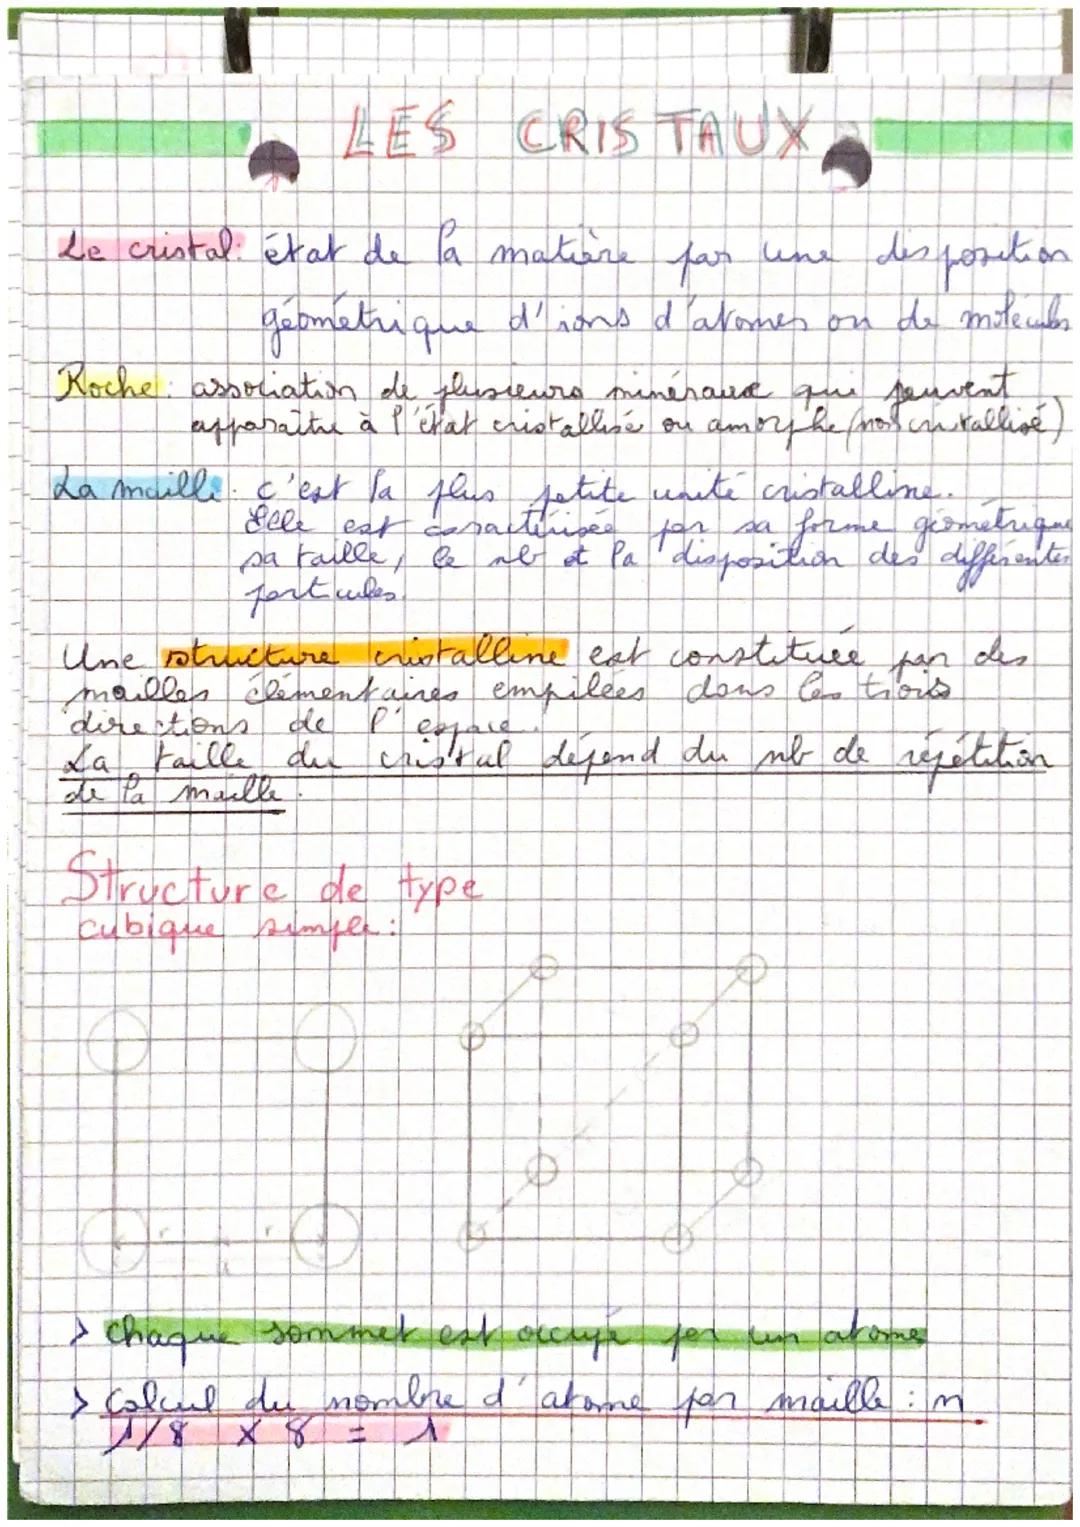 LES CRISTAUX
Le cristal: état de la matière par une disposition
géométrique d'ions d'atomes ou de molécules
Roche: association de plusieurs minéraux qui peuvent
apparaître à l'état cristallisé ou amorphe (non cristallisé)
La maille: c'est la plus petite unité cristalline.
Elle est caractérisée par sa forme géométrique
sa taille, le nb et la disposition des différentes
particules.
Une structure cristalline est constituée par des
mailles élémentaires empilées dans les trois
directions de l'espace.
La taille du cristal dépend du nb de répétition
de la maille.
Structure de type
cubique simple:
r r
a
> chaque sommet est occupé par un atome
> Calcul du nombre d'atome par maille : n
1/8 x 8 = 1